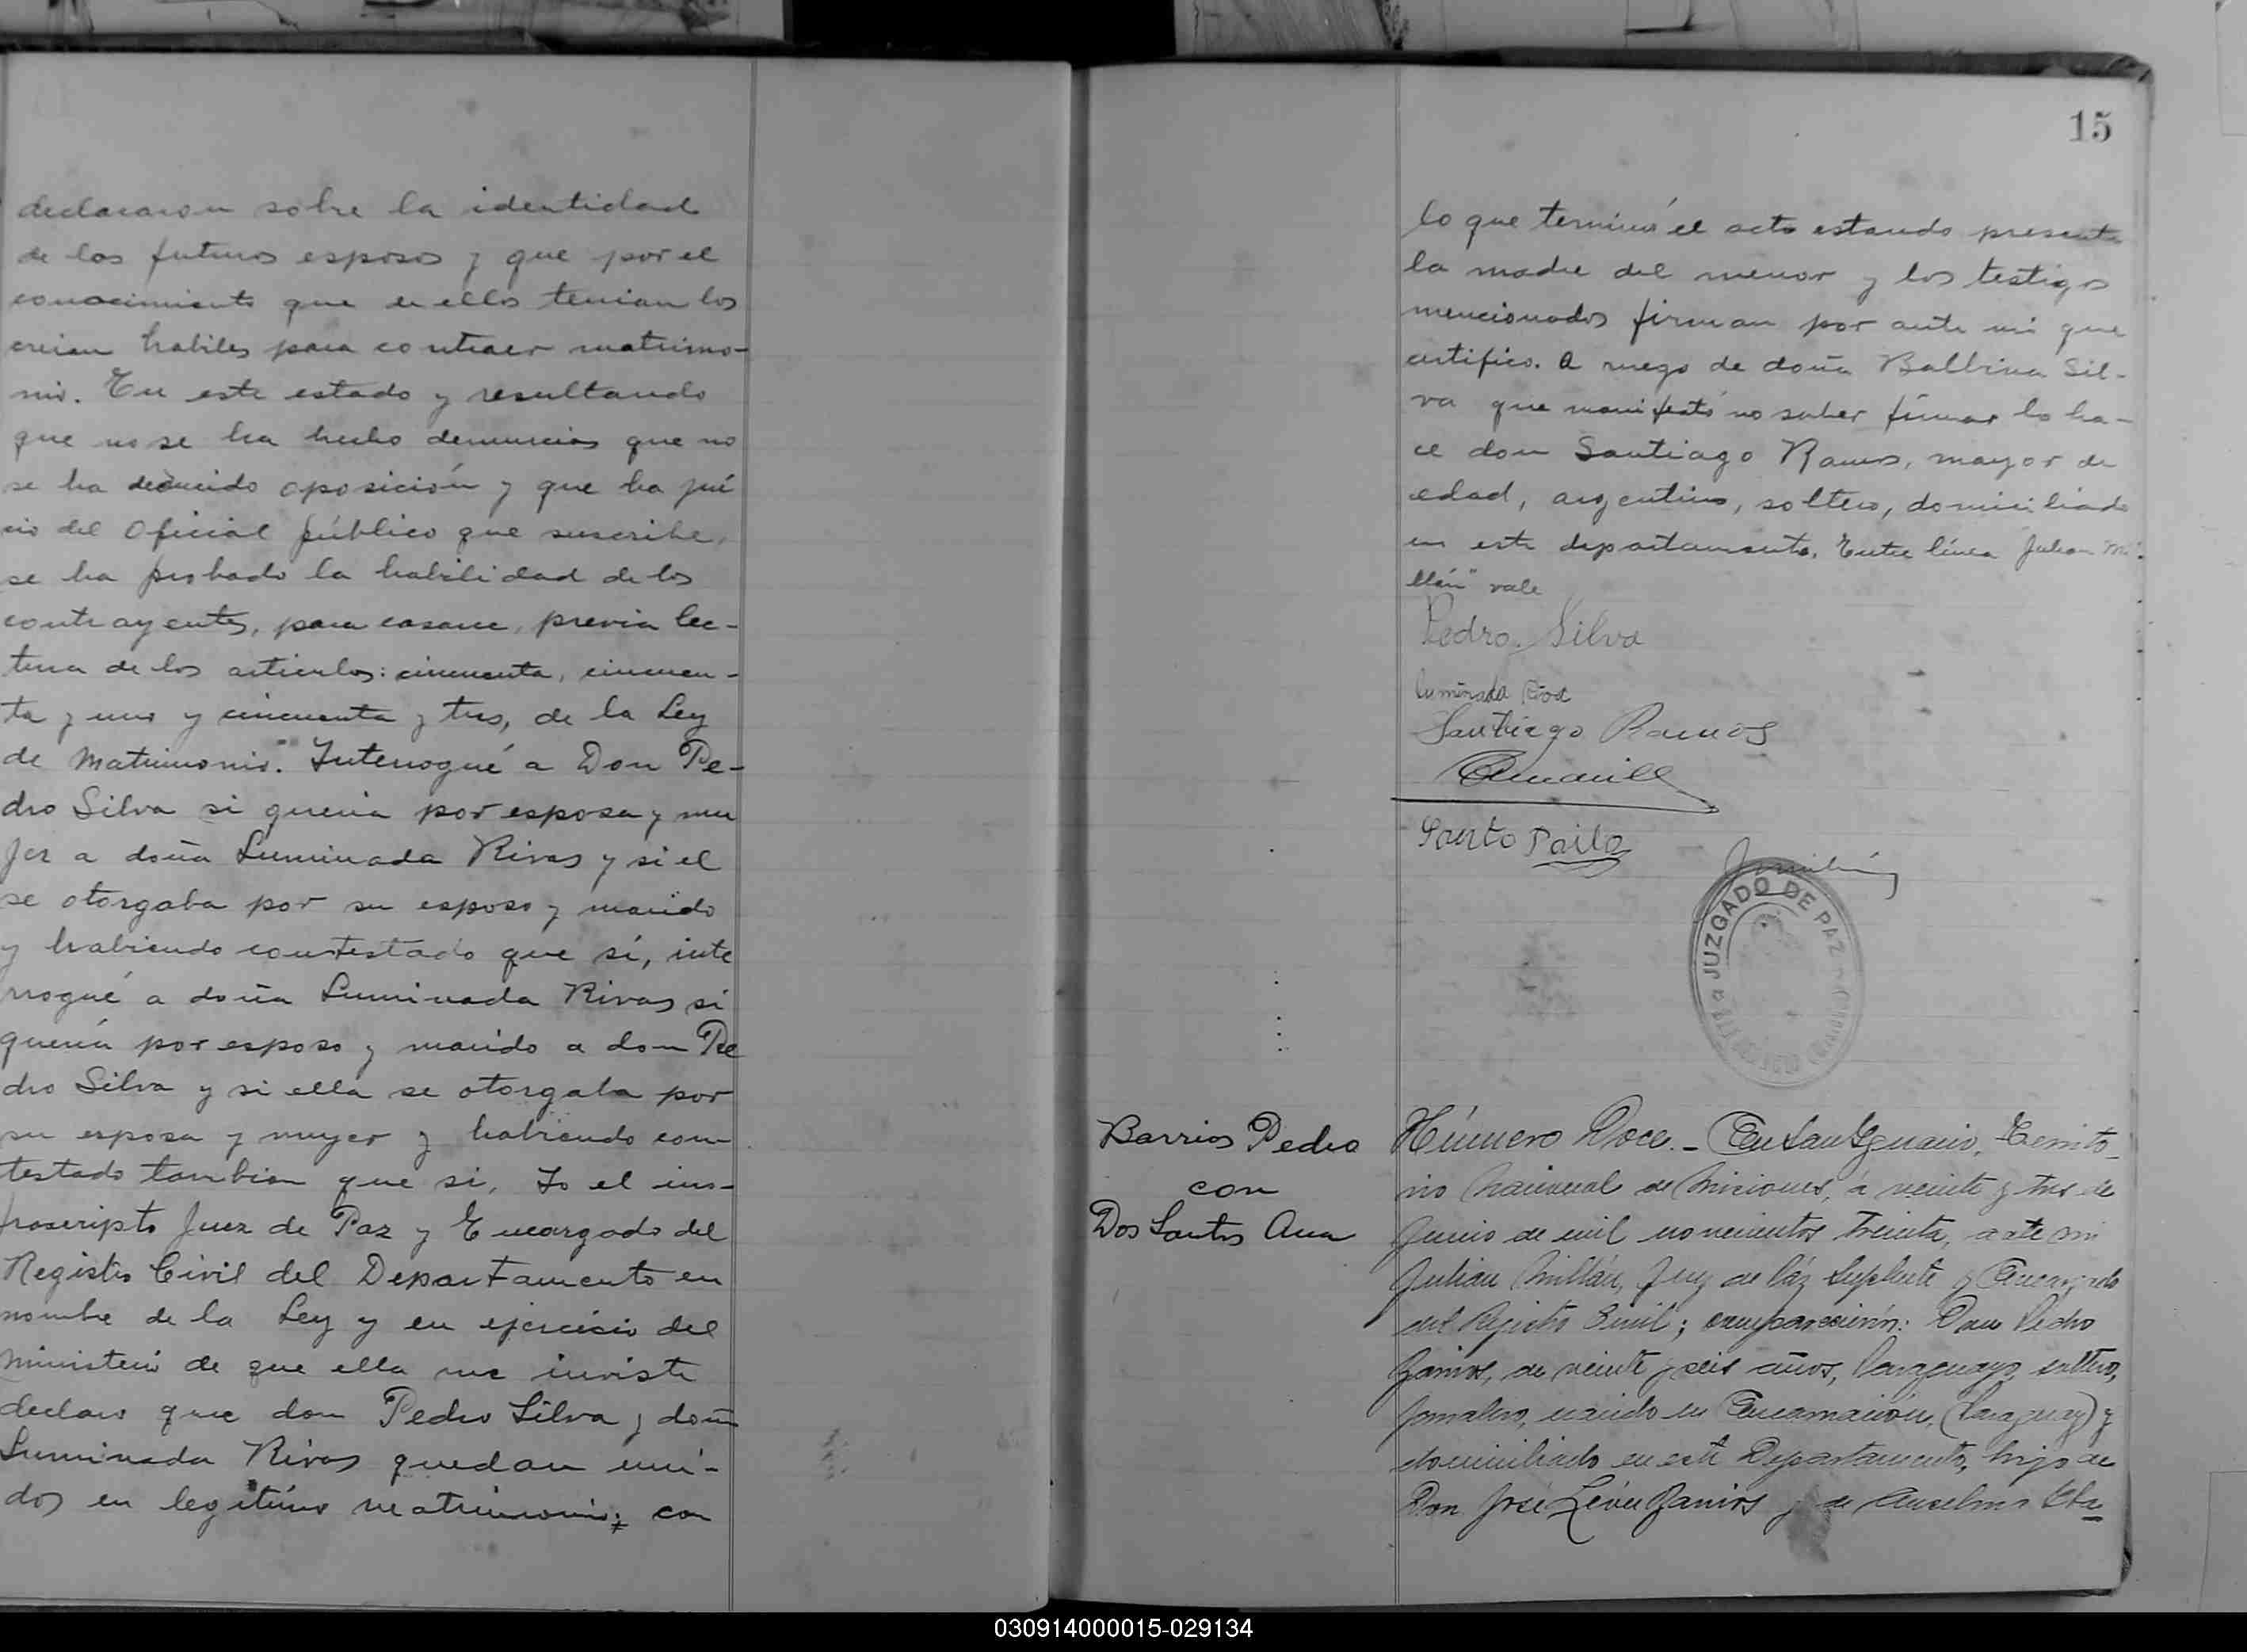 declararon sobre la identidad
de los futuros esposos y que por el
conocimiento que en ellos tenian los
creian habiles para contraer matrimo-
nio. En este estado y resultando
que no se ha hecho denuncias que no
se ha deducido oposición y que ha jui
cio del Oficial público que suscribe,
se ha probado la habilidad de los
contrayentes, para casarse, previa lec-
tura de los articulos: cincuenta, cincuen-
ta y uno y cincuenta y tres, de la Ley
de Matrimonio. Interrogué a Don Pe-
dro Silva si queria por esposa y mu
jer a doña Luminada Rivas y si el
se otorgaba por su esposo y marido
y habiendo contestado que sí, inte
rrogué a doña Luminada Rivas si
queria por esposo y marido a don Pe
dro Silva y si ella se otorgaba por
su esposa y muyer y habiendo con-
testado tambien que si, Yo el ins-
frascripto Juez de Paz y Encargado del
Registro Civil del Departamento en
nombre de la Ley y en ejercicio del
Ministerio de que ella me inviste
declaro que don Pedro Silva y doña
Luminada Rivas quedan uni-
dos en legitimo matrimonio; con
15
lo que terminó el acto estando presente
la madre del menor y los testigos
mencionados firman por ante mi que
certifico. A ruego de doña Balbina Sil-
va que manifestó no saber firmar lo ha-
ce don Santiago Ramos, mayor de
edad, argentino, soltero, domiciliado
en este departamento. Entre línea Julian Mi-
llán" vale
Pedro Silva
Luminada Rivas
Santiago Ramos
Santo Paila
JUZGADO DE PAZ
Barrios Pedro
con
Dos Santos Ana
Número Doce._ En San Ygnacio, Territo_
rio Nacional de Misiones, á veinte y tres de
Junio de mil novecientos treinta, ante mi
Julian Millán, Juez de Páz Suplente y Encargado
del Registro Civil; comparecieron: Don Pedro
Barrios, de veinte y seis años, Paraguayo, soltero,
jornalero, nacido en Encarnación, (Paraguay) y
domiciliado en este Departamento, hijo de
Don José León Barrios y de Anselma
030914000015-029134